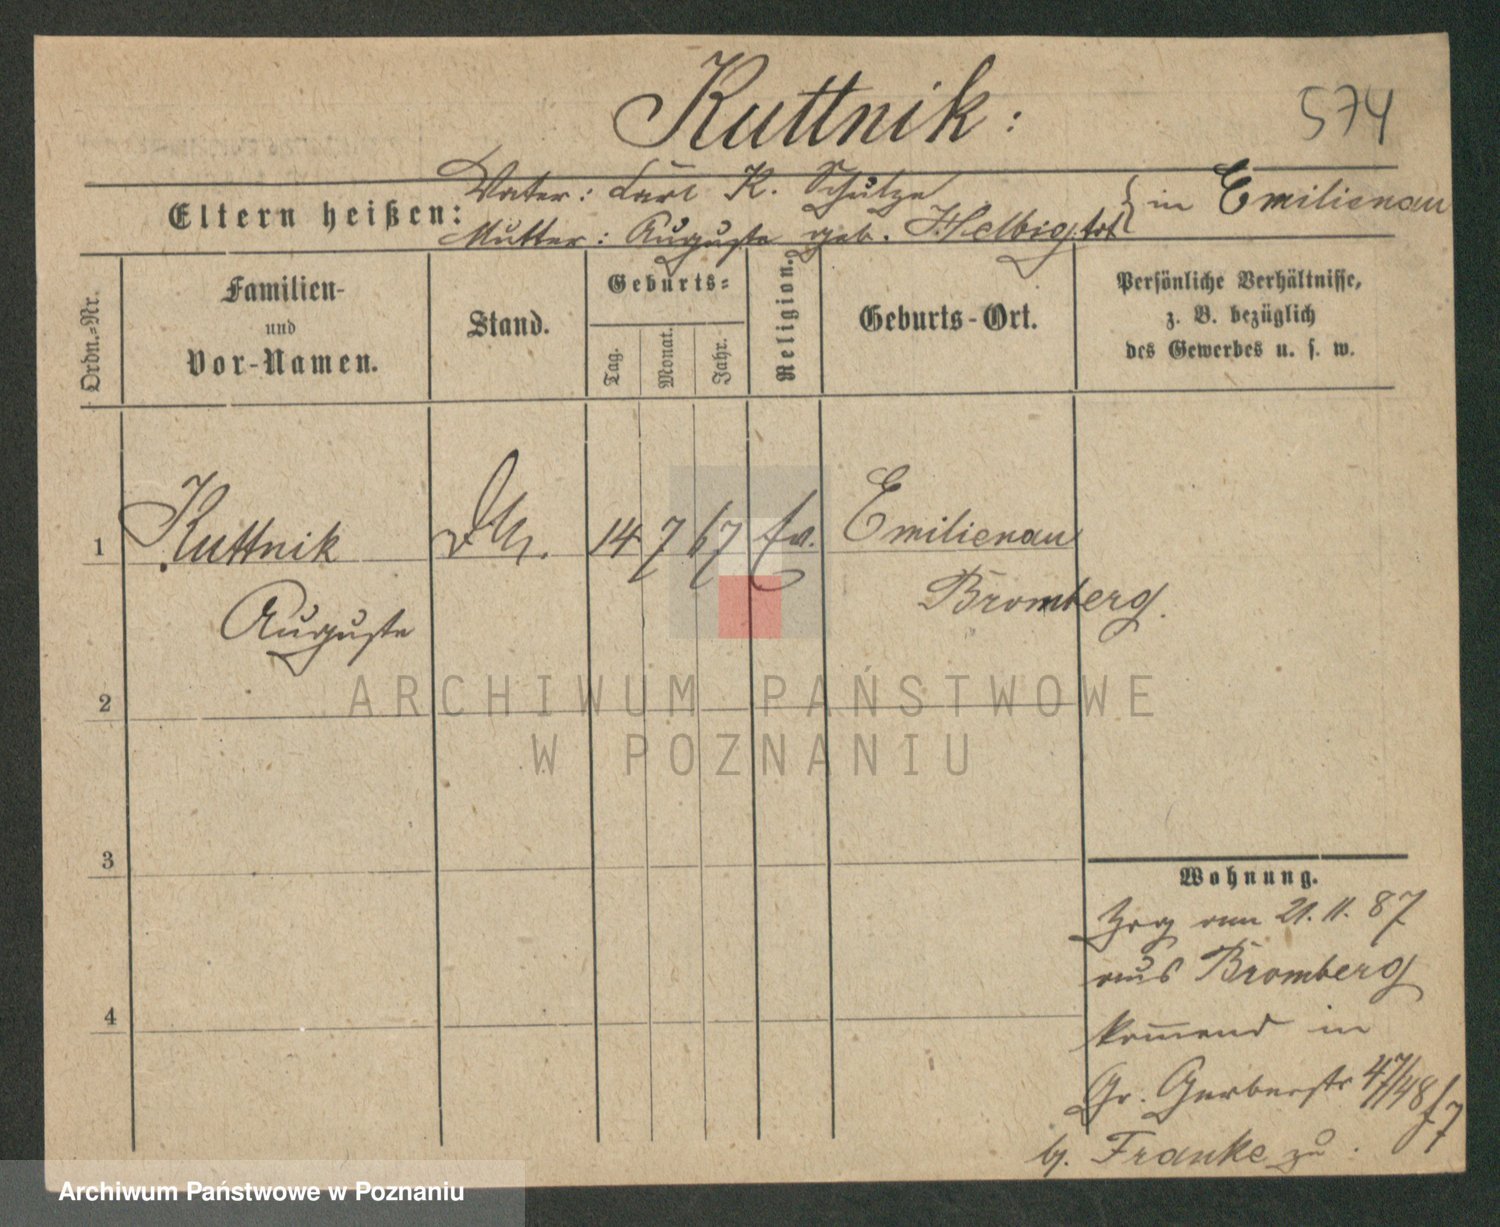 Kuttnik:
574
Eltern heißen:
Vater: Carl K. Schulze
Mutter: Auguste geb. Helbig, tot
in Emilienau
Ordn.-Nr.
Familien-
und
Vor-Namen.
Stand.
Geburts=
Tag.
Monat.
Jahr.
Religion.
Geburts-Ort.
Persönliche Verhältnisse,
z. B. bezüglich
des Gewerbes u. s. w.
1
Kuttnik
Auguste
14
7
67
Ev.
Emilienau
Bromberg.
2
3
4
Wohnung.
Zog am 21.11.87
aus Bromberg
kommend in
Gr. Gerberstr 47/48
b. Franke zu.
ARCHIWUM PAŃSTWOWE
W POZNANIU
Archiwum Państwowe w Poznaniu